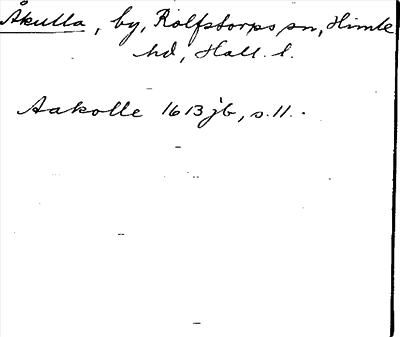 Åkulla, by, Rolfstorps sn, Himle
hd, Hall. l.
Aakolle 1613 jb, s. 11.